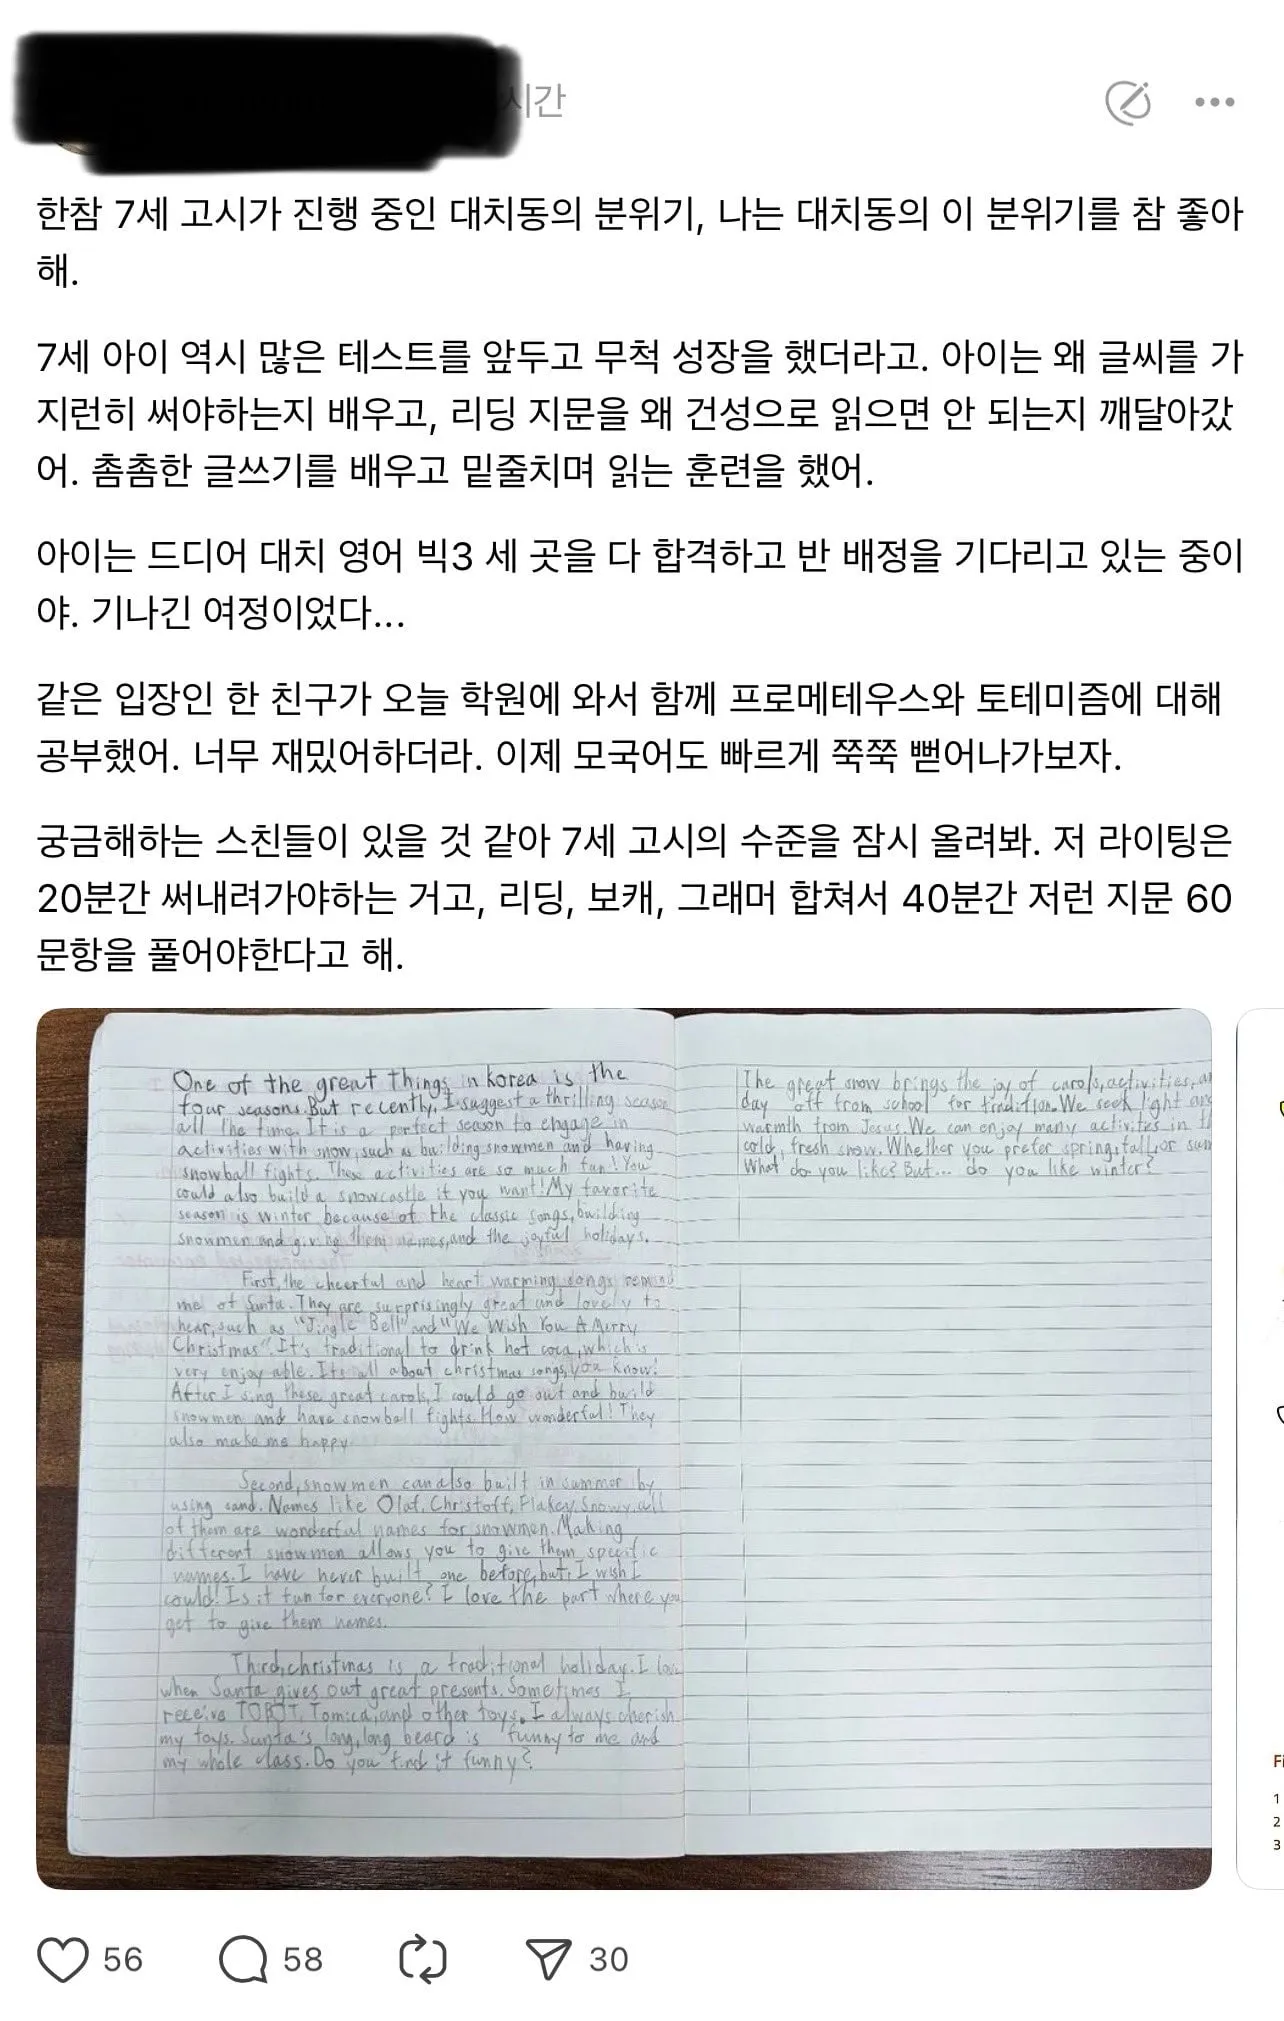 시간
한참 7세 고시가 진행 중인 대치동의 분위기, 나는 대치동의 이 분위기를 참 좋아
해.
7세 아이 역시 많은 테스트를 앞두고 무척 성장을 했더라고. 아이는 왜 글씨를 가
지런히 써야하는지 배우고, 리딩 지문을 왜 건성으로 읽으면 안 되는지 깨달아갔
어. 촘촘한 글쓰기를 배우고 밑줄치며 읽는 훈련을 했어.
아이는 드디어 대치 영어 빅3 세 곳을 다 합격하고 반 배정을 기다리고 있는 중이
야. 기나긴 여정이었다...
같은 입장인 한 친구가 오늘 학원에 와서 함께 프로메테우스와 토테미즘에 대해
공부했어. 너무 재밌어하더라. 이제 모국어도 빠르게 쭉쭉 뻗어나가보자.
궁금해하는 스친들이 있을 것 같아 7세 고시의 수준을 잠시 올려봐. 저 라이팅은
20분간 써내려가야하는 거고, 리딩, 보캐, 그래머 합쳐서 40분간 저런 지문 60
문항을 풀어야한다고 해.
One of the great things in korea is the
four seasons. But recently, I suggest a thrilling season
all the time. It is a perfect season to engage in
activities with snow, such as building snowmen and having
snowball fights. These activities are so much fun! You
could also build a snowcastle if you want! My favorite
season is winter because of the classic songs, building
snowmen and giving them names, and the joyful holidays.
First, the cheerful and heart warming songs remind
me of Santa. They are surprisingly great and lovely to
hear, such as "Jingle Bell" and "We Wish You A Merry
Christmas". It's traditional to drink hot coca, which is
very enjoyable. Its all about christmas songs, you know!
After I sing these great carols, I could go out and build
snowmen and have snowball fights. How wonderful! They
also make me happy.
Second, snowmen can also built in summer by
using sand. Names like Olaf, Christoff, Flakey, Snowy, all
of them are wonderful names for snowmen. Making
different snowmen allows you to give them specific
names. I have never built one before, but I wish I
could! Is it fun for everyone? I love the part where you
get to give them names.
Third, christmas is a traditional holiday. I love
when Santa gives out great presents. Sometimes I
receive TOBOT, Tomica, and other toys. I always cherish
my toys. Santa's long, long beard is funny to me and
my whole class. Do you find it funny?
The great snow brings the joy of carols, activities, an
day off from school for tradition. We seek light and
warmth from Jesus. We can enjoy many activities in th
cold, fresh snow. Whether you prefer spring, fall, or sum
What do you like? But... do you like winter?
Fi
1
2
3
56
58
30